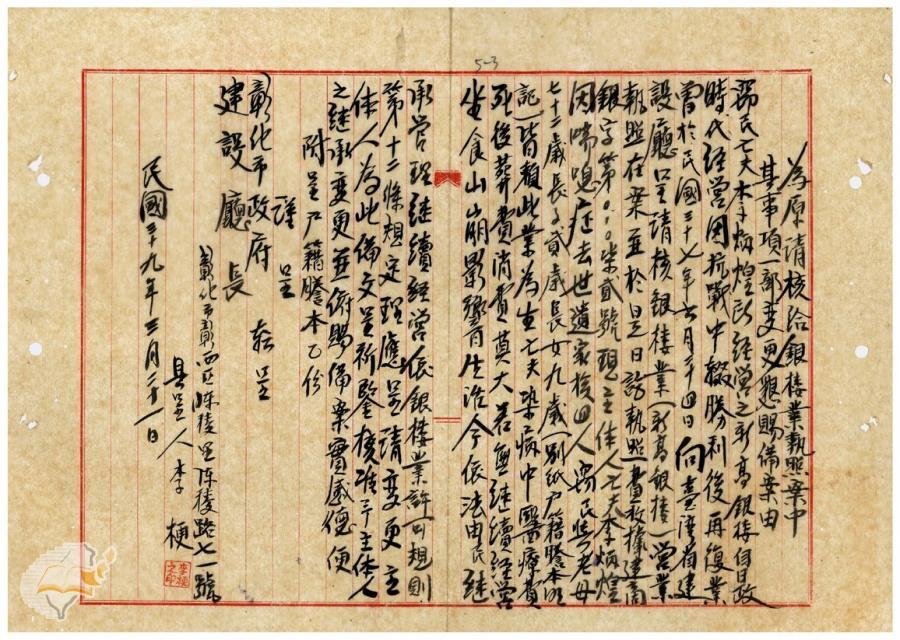 5-3
為原請核給銀樓業執照案中
其事項一部變更懇賜備案由
竊民亡夫李炳煌所經營之新高銀樓自日政
時代經營因抗戰中輟勝利後再復業
曾於民國三十七年 月二十四日向臺灣省建
設廳呈請核銀樓業(新高銀樓)營業
執照在案並於是日 執照壹枚據建商
銀字第0.0柒貳號現主体人亡夫李炳煌
因喘息症去世遺家族四人竊民 老母
七十二歲長子貳歲長女九歲(別紙戶籍謄本明
記)皆賴此業為生亡夫染病中醫療費
死後葬費消費莫大若無繼續經營
坐食山崩影響生活今依法由民繼
承管理繼續經營依銀樓業許可規則
第十二條規定理應呈請變更主
体人為此備文呈祈鑒核准予主体人
之繼承變更並俯賜備案實感德便
附呈戶籍謄本乙份
謹呈
彰化市政府 轉呈
建設廳長
彰化市彰西區陳稜里陳稜路七一號
具呈人 李梗
民國三十九年三月二十一日
李梗之印